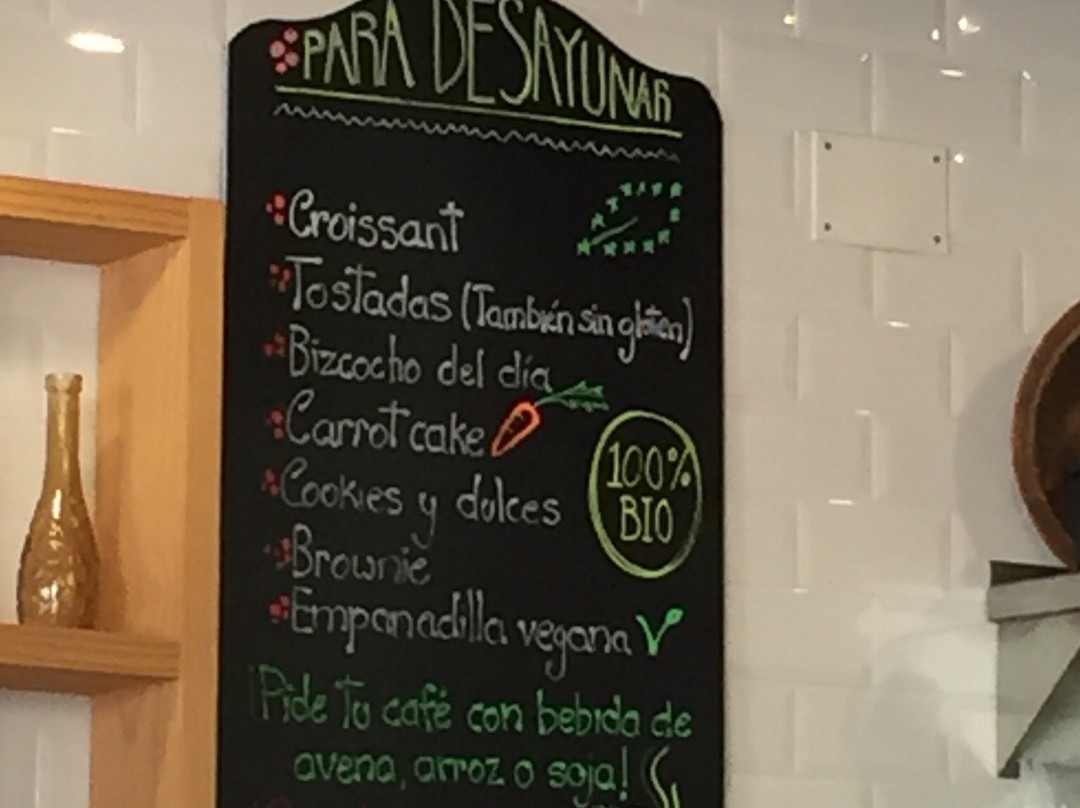 PARA DESAYUNAR
Croissant
Tostadas (También sin gluten)
Bizcocho del día
Carrot cake
100%
BIO
Cookies y dulces
Brownie
Empanadilla vegana V
¡Pide tu café con bebida de
avena, arroz o soja!